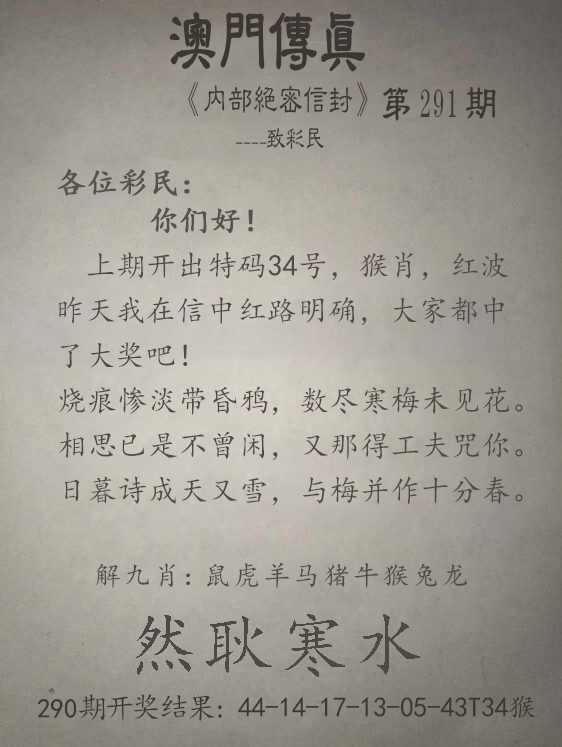 澳門傳真
《内部絕密信封》第291期
----致彩民
各位彩民：
你们好！
上期开出特码34号，猴肖，红波
昨天我在信中红路明确，大家都中
了大奖吧！
烧痕惨淡带昏鸦，数尽寒梅未见花。
相思已是不曾闲，又那得工夫咒你。
日暮诗成天又雪，与梅并作十分春。
解九肖：鼠虎羊马猪牛猴兔龙
然耿寒水
290期开奖结果：44-14-17-13-05-43T34猴